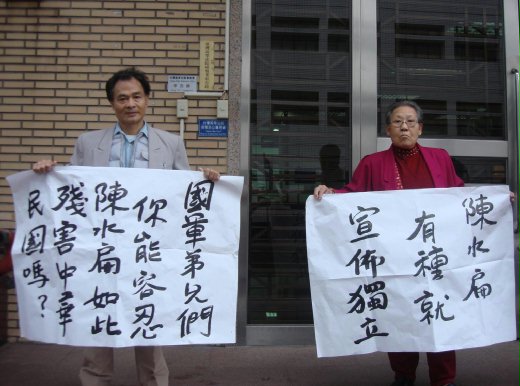 國軍弟兄們
你能容忍
陳水扁如此
殘害中華
民國嗎？
陳水扁
有種就
宣佈獨立